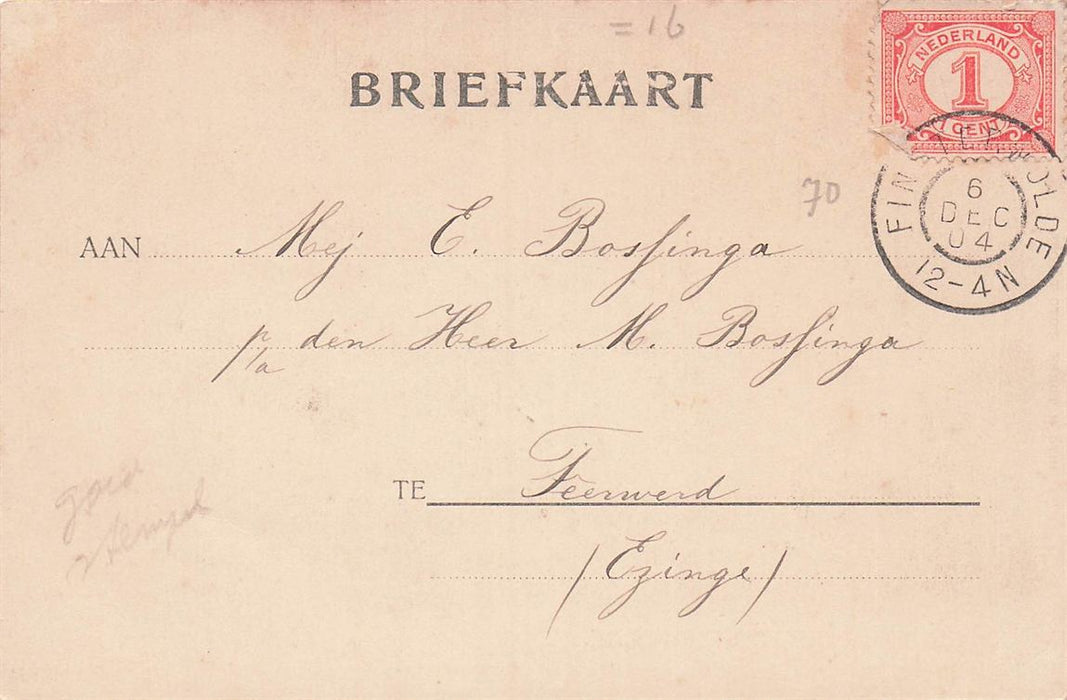 = 16
BRIEFKAART
NEDERLAND
1
CENT
FINSTERWOLDE
6
DEC
04
12-4N
70
AAN Mej E. Bosſinga
p/a den Heer M. Bosſinga
TE Feerwerd
(Ezinge)
stempel